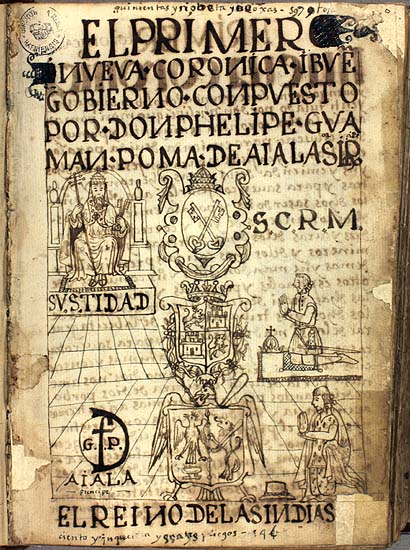 quinientas y nobeta y ... oxas - 597 foj
EL PRIMER
NVEVA·CORONICA·IBVE
GOBIERNO·CONPVESTO
POR·DON PHELIPE·GVA
MAN·POMA·DE AIALA S͞R
S.C.R.M.
SV.S.TIDAD
G. P.
AIALA
principe
EL REINO DE LAS INDIAS
ciento y quarenta y ... pliegos - 146